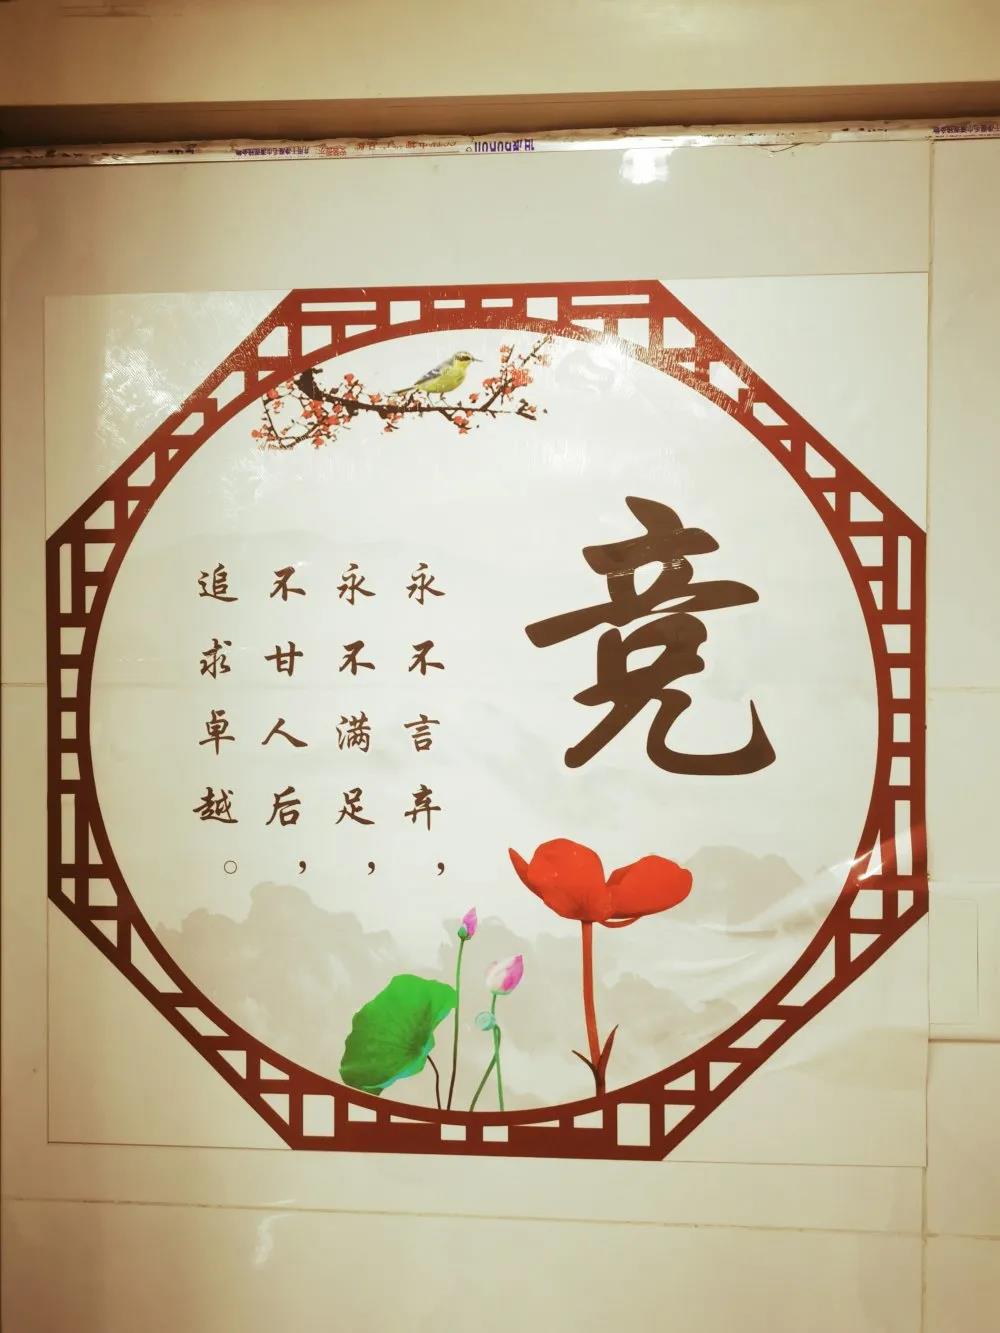 竞
永不言弃，
永不满足，
不甘人后，
追求卓越。